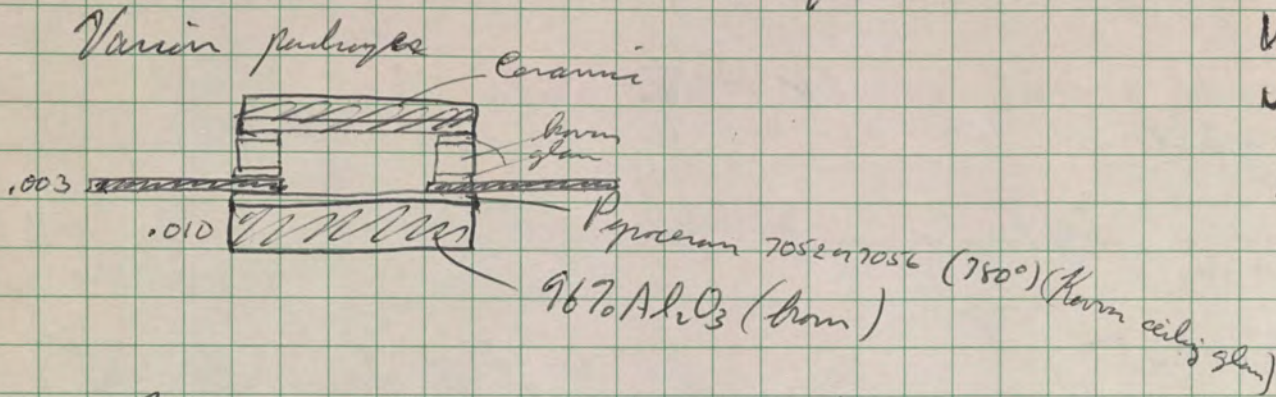 Varian packages
Ceramic
kovar
glass
.003
.010
Pyroceram 7052 or 7056 (780°) (Kovar ceiling glass)
96% Al₂O₃ (brown)